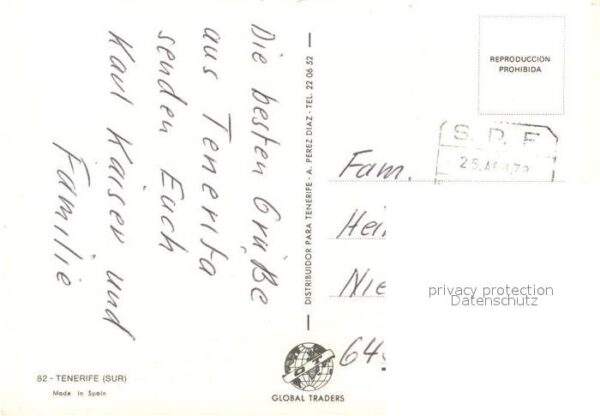 Die besten Grüße
aus Tenerifa
senden Euch
Karl Kaiser und
Familie
82 - TENERIFE (SUR)
Made in Spain
DISTRIBUIDOR PARA TENERIFE - A. PEREZ DIAZ - TEL. 22 06 52
GLOBAL TRADERS
REPRODUCCION
PROHIBIDA
S. P. E.
Fam.
Hei
Nie
privacy protection
Datenschutz
64